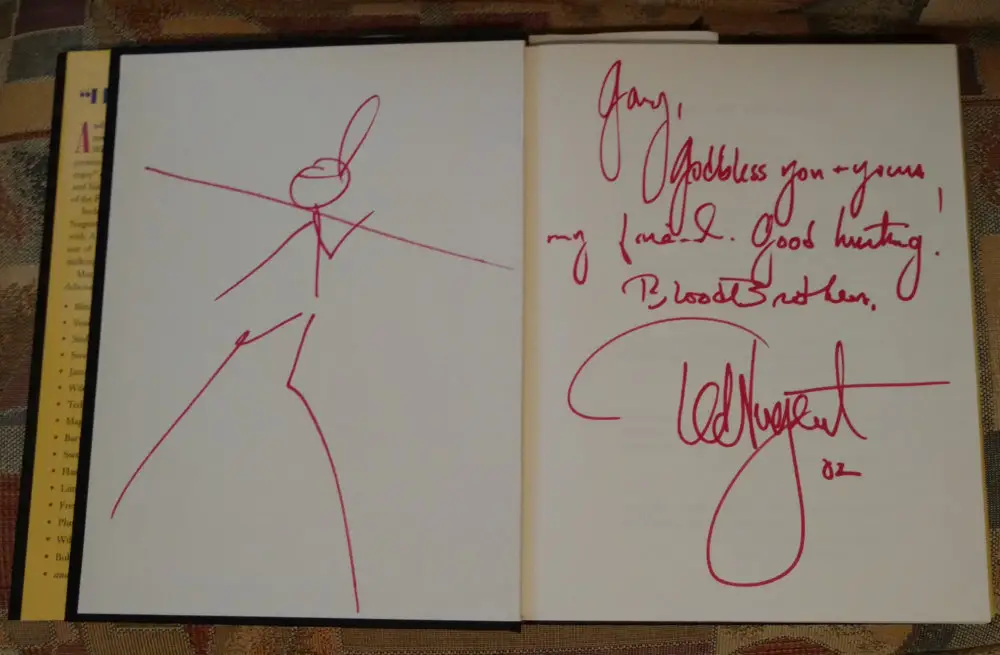 Gary,
Godbless you + yours
my friend. Good hunting!
BloodBrothers,
Ted Nugent
02